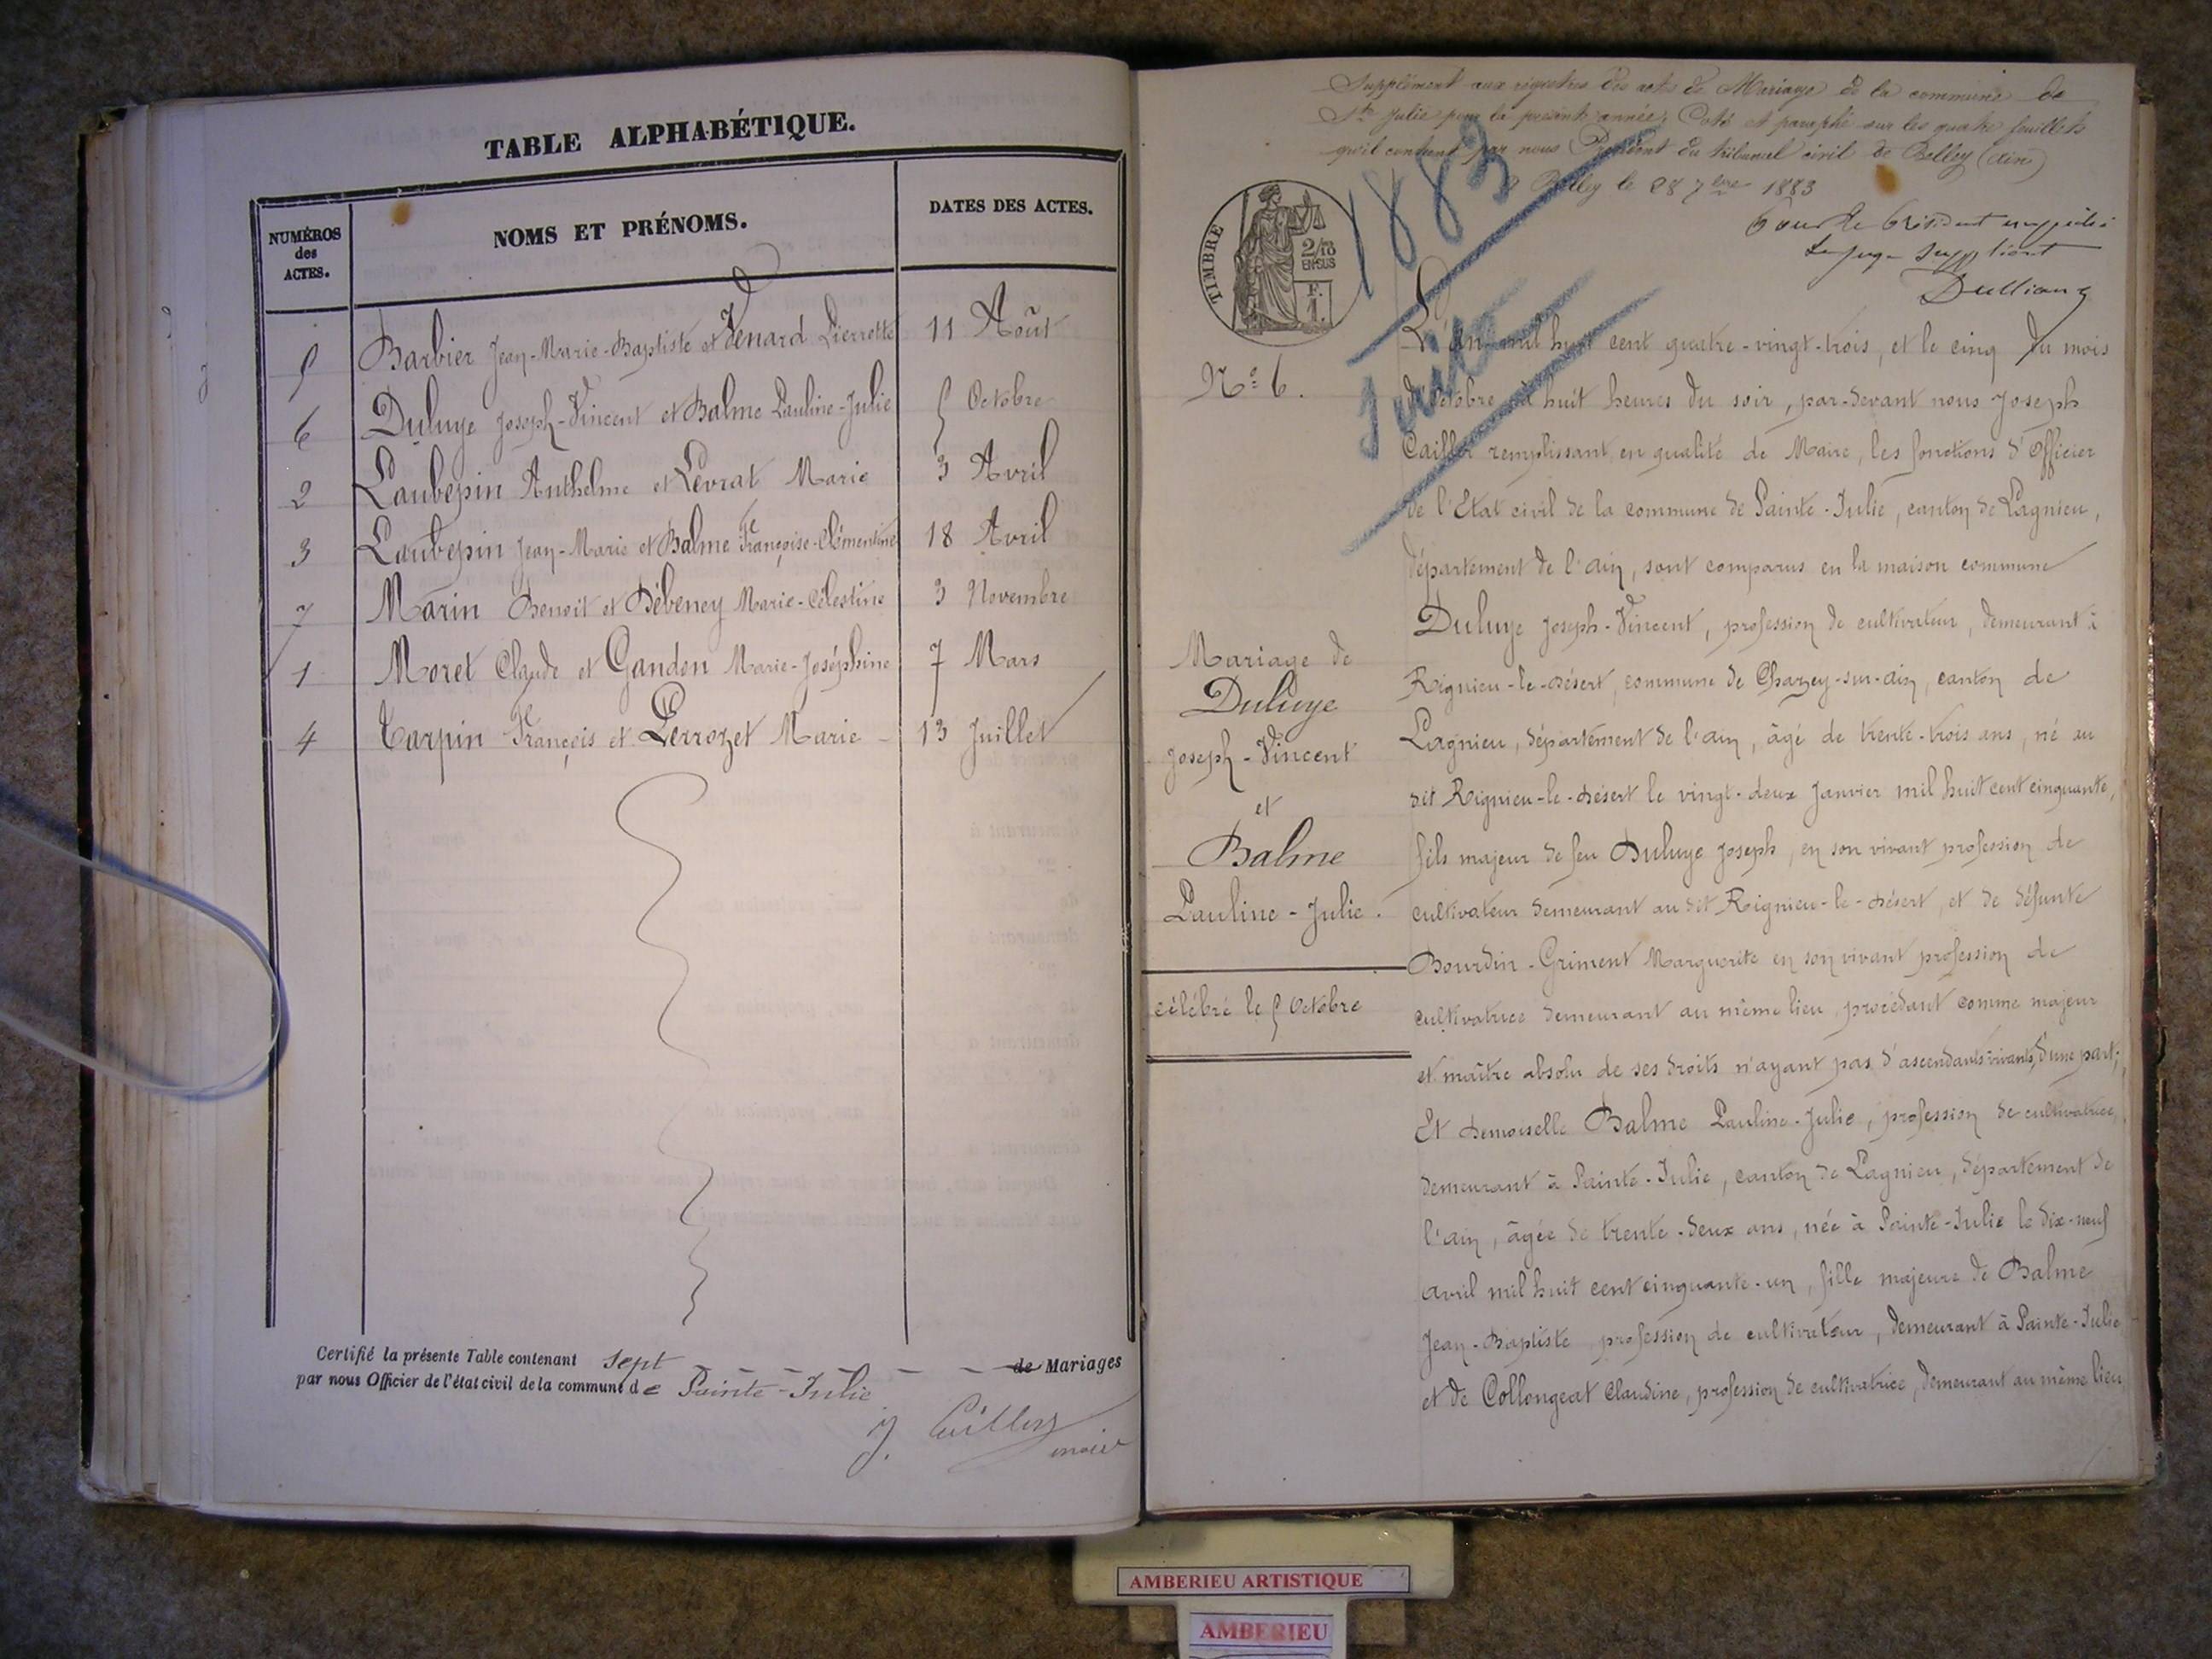 TABLE ALPHABÉTIQUE.
NUMÉROS des ACTES.
NOMS ET PRÉNOMS.
DATES DES ACTES.
5 Barbier Jean-Marie-Baptiste et Venard Pierrette 11 Août
6 Duluye Joseph-Vincent et Balme Pauline-Julie 5 Octobre
2 Laubepin Anthelme et Levrat Marie 3 Avril
3 Laubepin Jean-Marie et Balme Françoise-Clémentine 18 Avril
7 Marin Benoit et Débeney Marie-Célestine 3 Novembre
1 Moret Claude et Gandon Marie-Joséphine 7 Mars
4 Tarpin François et Perrozet Marie 13 Juillet
Certifié la présente Table contenant sept de Mariages
par nous Officier de l'état civil de la commune de Sainte-Julie
J. Caillon
maire
Supplément aux registres des actes de Mariage de la commune de
Ste Julie pour la présente année, Coté et paraphé sur les quatre feuillets
qu'il contient par nous Président du tribunal civil de Belley (Ain)
à Belley le 28 7bre 1883
Pour le Président empêché
Le juge suppléant
TIMBRE
2/10
EN SUS
F.
1.
1883
Juio
N° 6.
L'an mil huit cent quatre-vingt-trois, et le cinq du mois
d'Octobre à huit heures du soir, par-devant nous Joseph
Caillon remplissant, en qualité de Maire, les fonctions d'Officier
de l'Etat civil de la commune de Sainte-Julie, canton de Lagnieu,
département de l'ain, sont comparus en la maison commune
Duluye Joseph-Vincent, profession de cultivateur, demeurant à
Rignieu-le-désert, commune de Chazey-sur-ain, canton de
Lagnieu, département de l'ain, âgé de trente-trois ans, né au
dit Rignieu-le-désert le vingt-deux Janvier mil huit cent cinquante,
fils majeur de feu Duluye Joseph, en son vivant profession de
cultivateur demeurant au dit Rignieu-le-désert, et de défunte
Bourdin-Griment Marguerite en son vivant profession de
cultivatrice demeurant au même lieu, procédant comme majeur
et maître absolu de ses droits n'ayant pas d'ascendants vivants, d'une part;
Et demoiselle Balme Pauline-Julie, profession de cultivatrice,
demeurant à Sainte-Julie, canton de Lagnieu, département de
l'ain, âgée de trente-deux ans, née à Sainte-Julie le dix-neuf
avril mil huit cent cinquante-un, fille majeure de Balme
Jean-Baptiste, profession de cultivateur, demeurant à Sainte-Julie
et de Collongeat Claudine, profession de cultivatrice, demeurant au même lieu
Mariage de
Duluye
Joseph-Vincent
et
Balme
Pauline-Julie.
célébré le 5 Octobre
AMBERIEU ARTISTIQUE
AMBERIEU